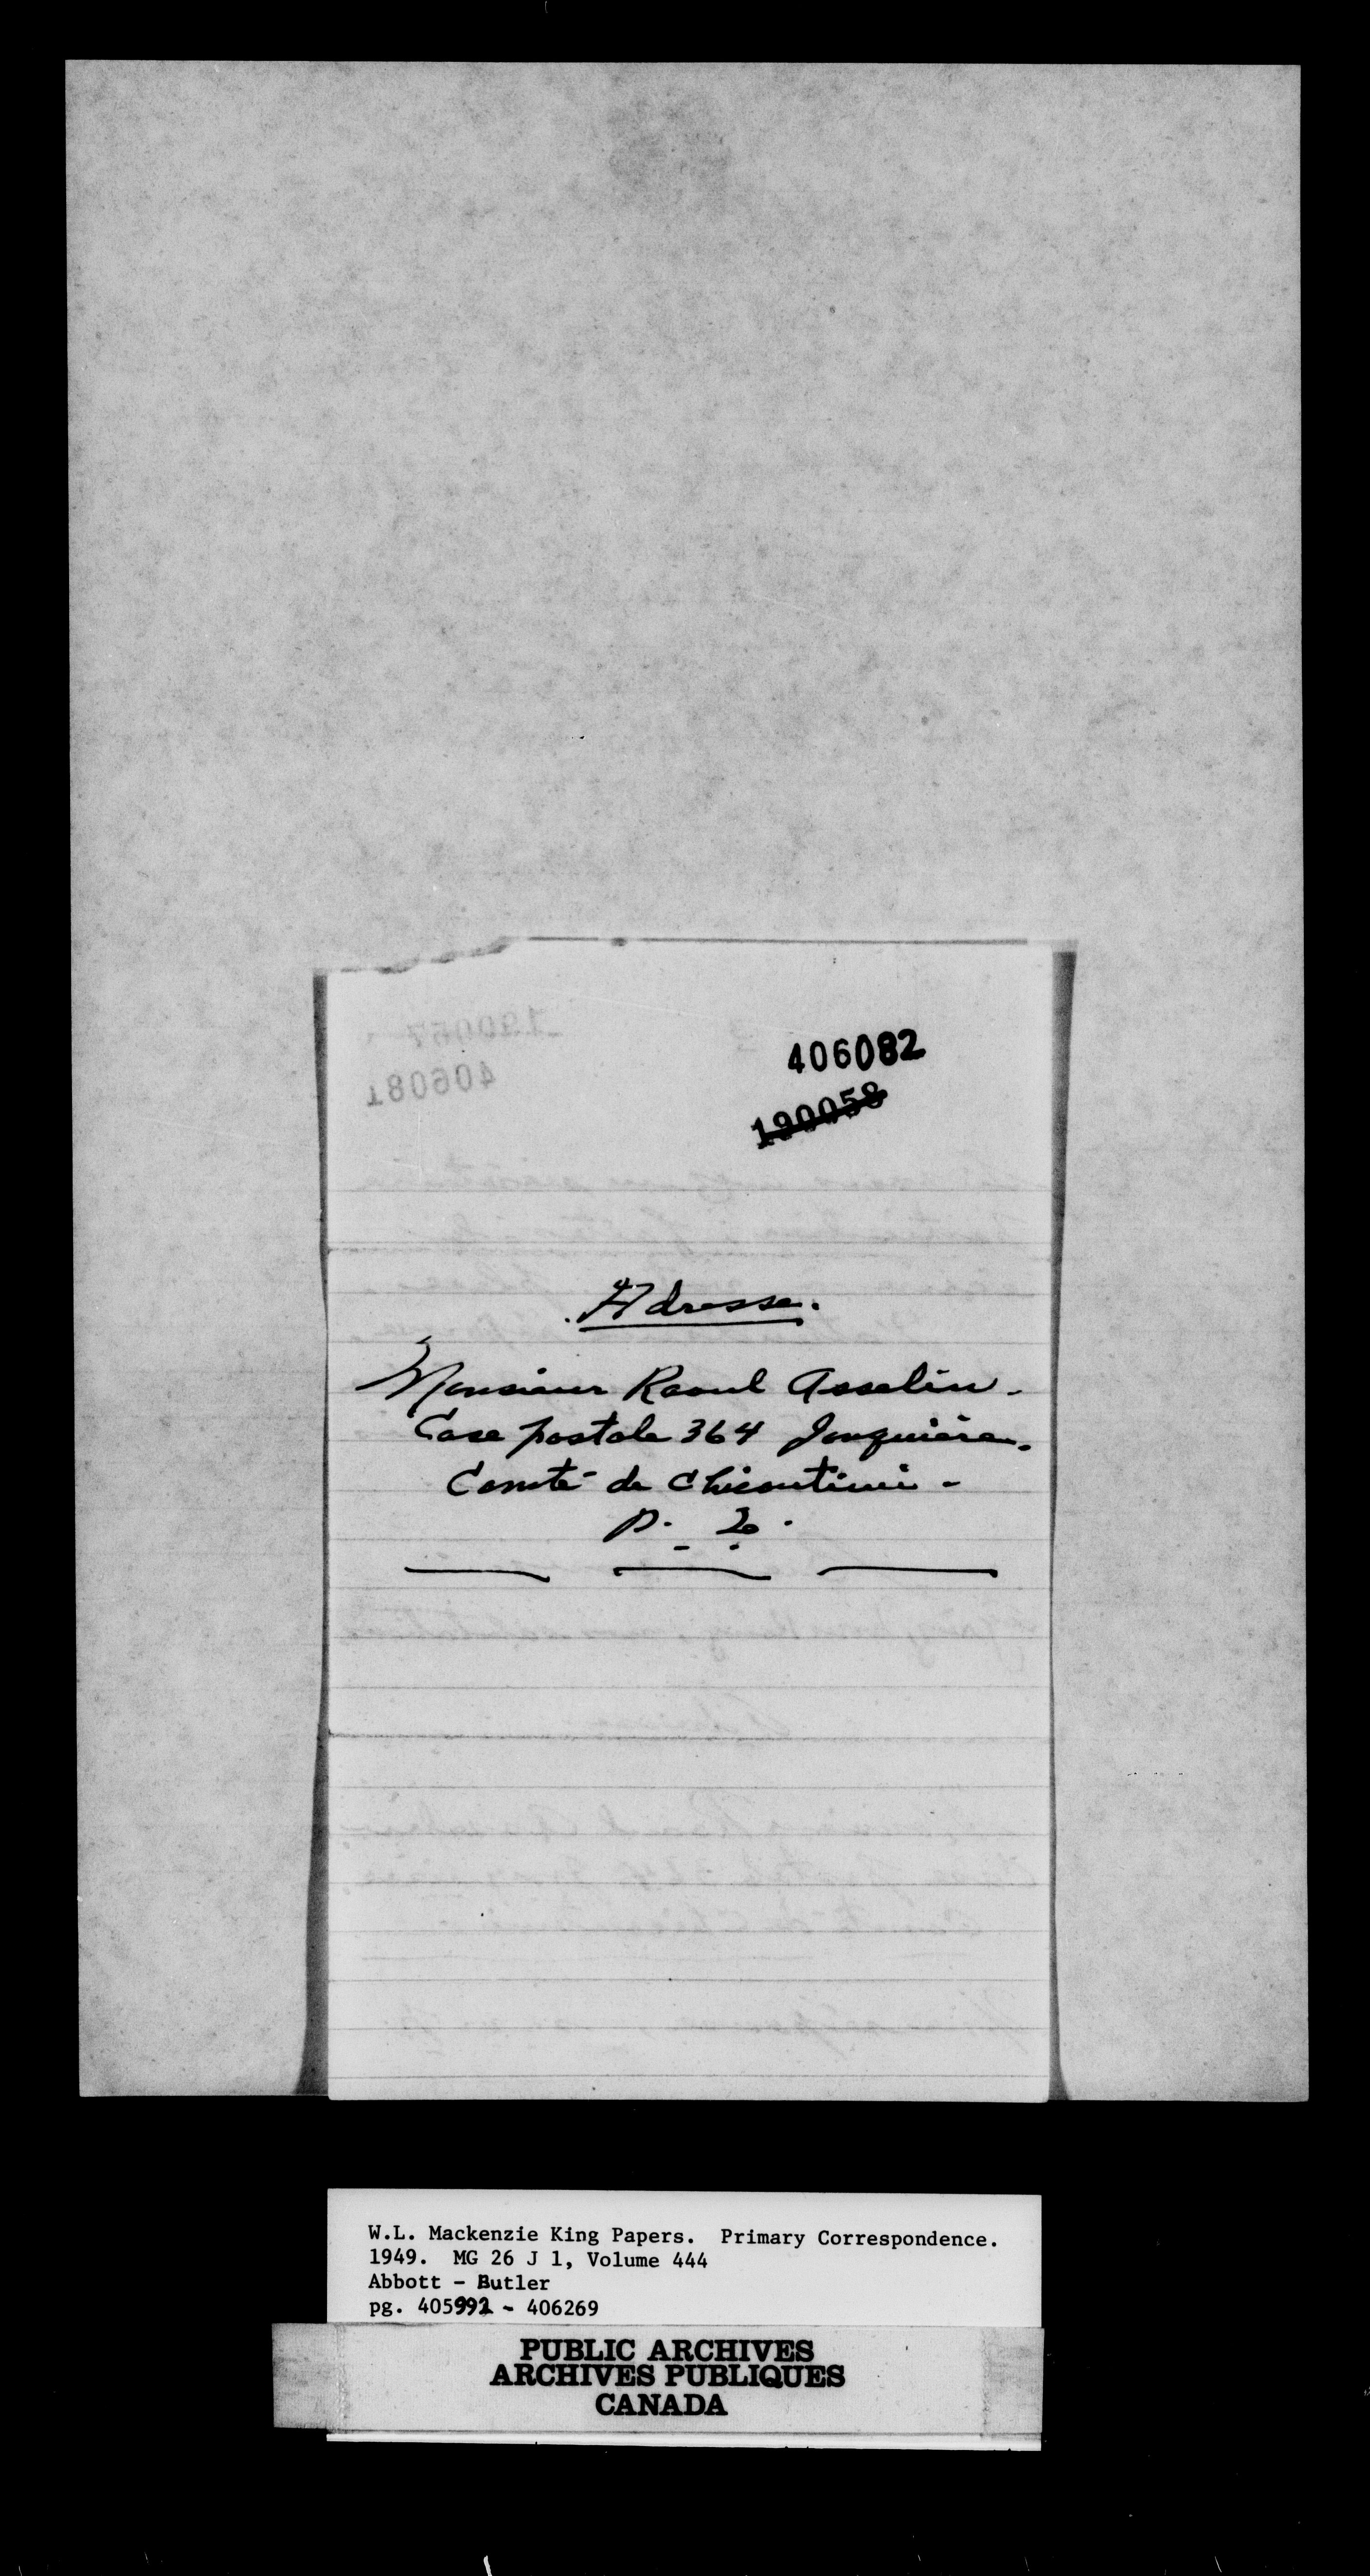 406082
190058
Adresse.
Monsieur Raoul Asselin.
Case postale 364 Jonquière.
Comté de Chicoutimi -
P. Q.
W.L. Mackenzie King Papers. Primary Correspondence.
1949. MG 26 J 1, Volume 444
Abbott - Butler
pg. 405992 - 406269
PUBLIC ARCHIVES
ARCHIVES PUBLIQUES
CANADA